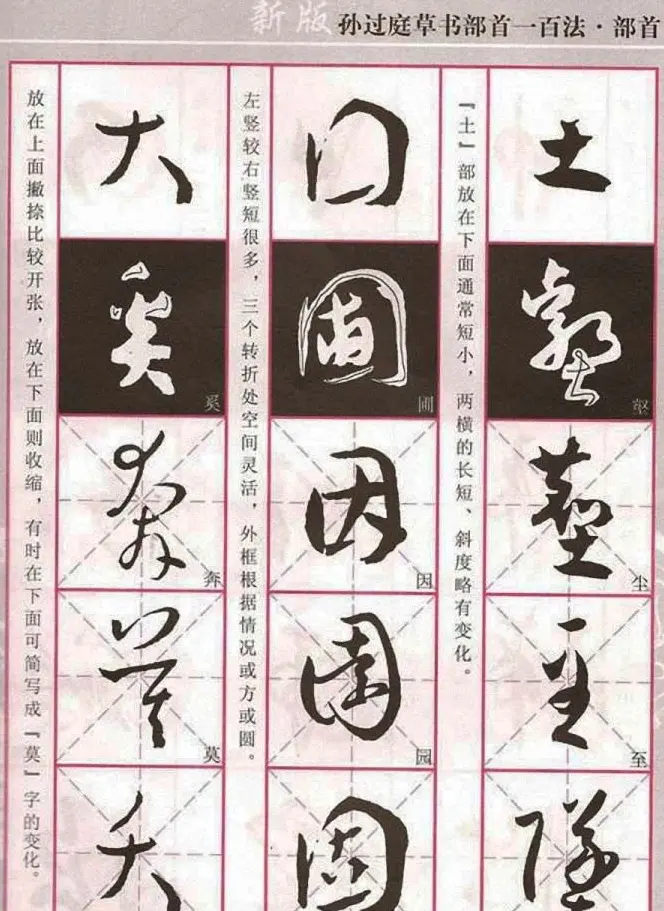 新版 孙过庭草书部首一百法·部首
土
壑
壑
尘
尘
至
至
墜
『土』部放在下面通常短小，两横的长短、斜度略有变化。
囗
圃
圃
因
因
园
园
固
左竖较右竖短很多，三个转折处空间灵活，外框根据情况或方或圆。
大
奚
奚
奔
奔
莫
莫
夭
放在上面撇捺比较开张，放在下面则收缩，有时在下面可简写成『莫』字的变化。